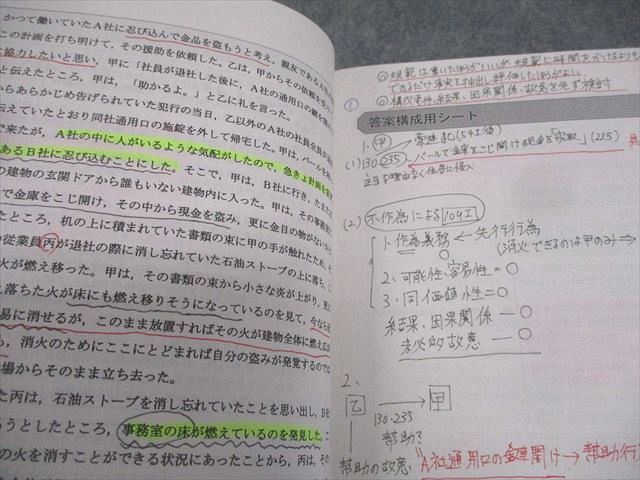 かつて働いていたA社に忍び込んで金品を盗もうと考え、親友である
この計画を打ち明けて、その援助を依頼した。乙は、甲からその依頼を受
協力したいと思い、甲に「社員が退社した後に、A社の通用口の鍵を開け
と伝えたところ、甲は、「助かるよ。」と乙に礼を言った。
からあらかじめ告げられていた犯行の当日、乙以外のA社の社員全員が
伝えていたとおり同社通用口の施錠を外して帰宅した。甲は、バールを携
で来たが、A社の中に人がいるような気配がしたので、急きょ計画を
あるB社に忍び込むことにした。そこで、甲は、B社に行き、たまた
の玄関ドアから誰もいない建物内に入った。甲は、その事務室
で金庫をこじ開け、その中から現金を盗み、更に金目の物がないか
たところ、机の上に積まれていた書類の束に甲の手が触れたため、そ
の従業員丙が退社の際に消し忘れていた石油ストーブの上に落ち、こ
火が燃え移った。甲は、その書類の束から小さな炎が上がり、更に
落ちた火が床にも燃え移りそうになっているのを見て、今なら
易に消せるが、このまま放置すればその火が建物全体に燃え広
も、消火のためにここにとどまれば自分の盗みが発覚するので
場からそのまま立ち去った。
た丙は、石油ストーブを消し忘れていたことを思い出し、B社
うとしたところ、事務室の床が燃えているのを発見した。
の火を消すことができる状況にあったことから、丙は、その
できるだけ事実を抽出し評価した
構成要件、結果、因果関係、故意を先ず検討す
答案構成用シート
1. 甲
(1) 130 235 バールで金庫をこじ開け現金を「窃取」(235)
正当な理由なく住居に侵入
(2) 不作為による109Ⅰ
1. 作為義務 ← 先行行為
(消火できるのは甲のみ)
2. 可能性・容易性=○
3. 同価値性=○
結果、因果関係 — ○
未必的故意 — ○
2、
乙 → 甲
130・235
幇助?
幇助の故意 "A社通用口の鍵開け → 幇助行